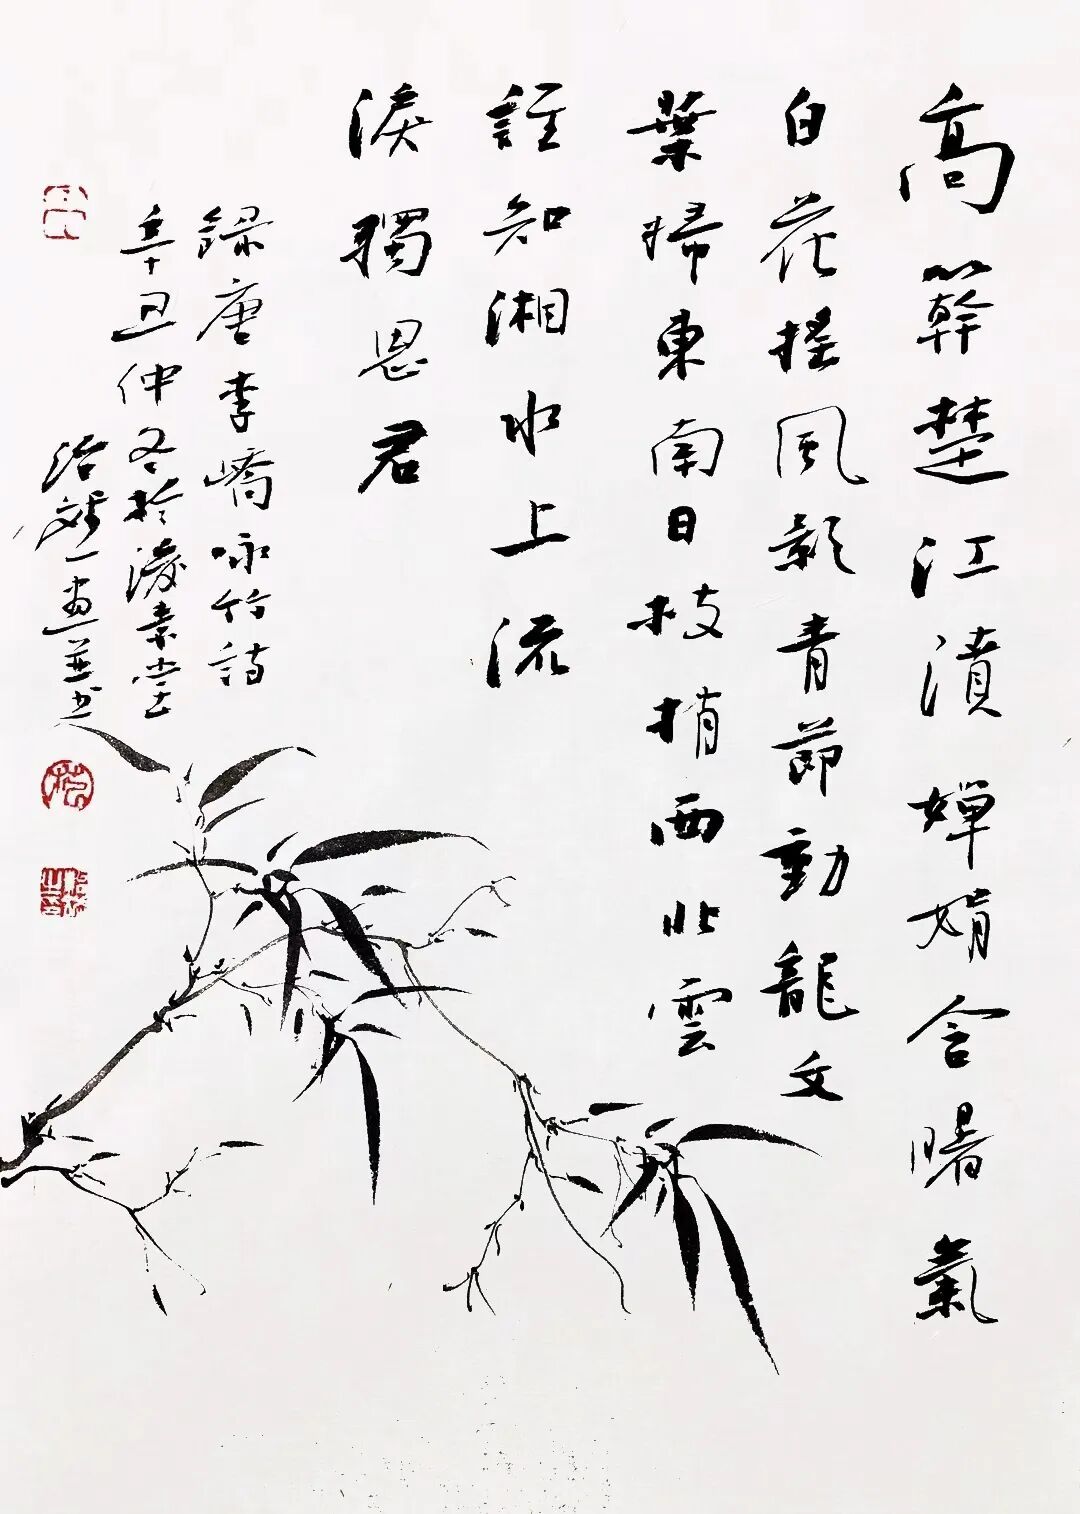 高簳楚江濆嬋娟含曙氣
白花摇風影青節動龍文
葉掃東南日枝捎西北雲
誰知湘水上流
淚獨思君
錄唐李嶠咏竹詩
辛丑仲冬於素堂
治畫並